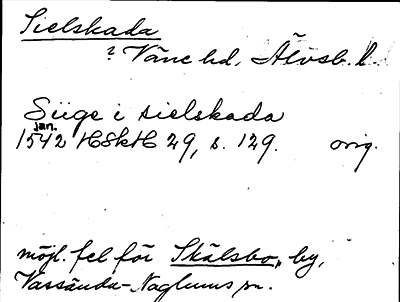 Sielskada
? Väne hd, Älvsb. l.
Siige i sielskada
jan.
1542 HSkH 29, s. 129. orig.
möjl. fel för Skälsbo, by,
Vassända-Naglums sn.